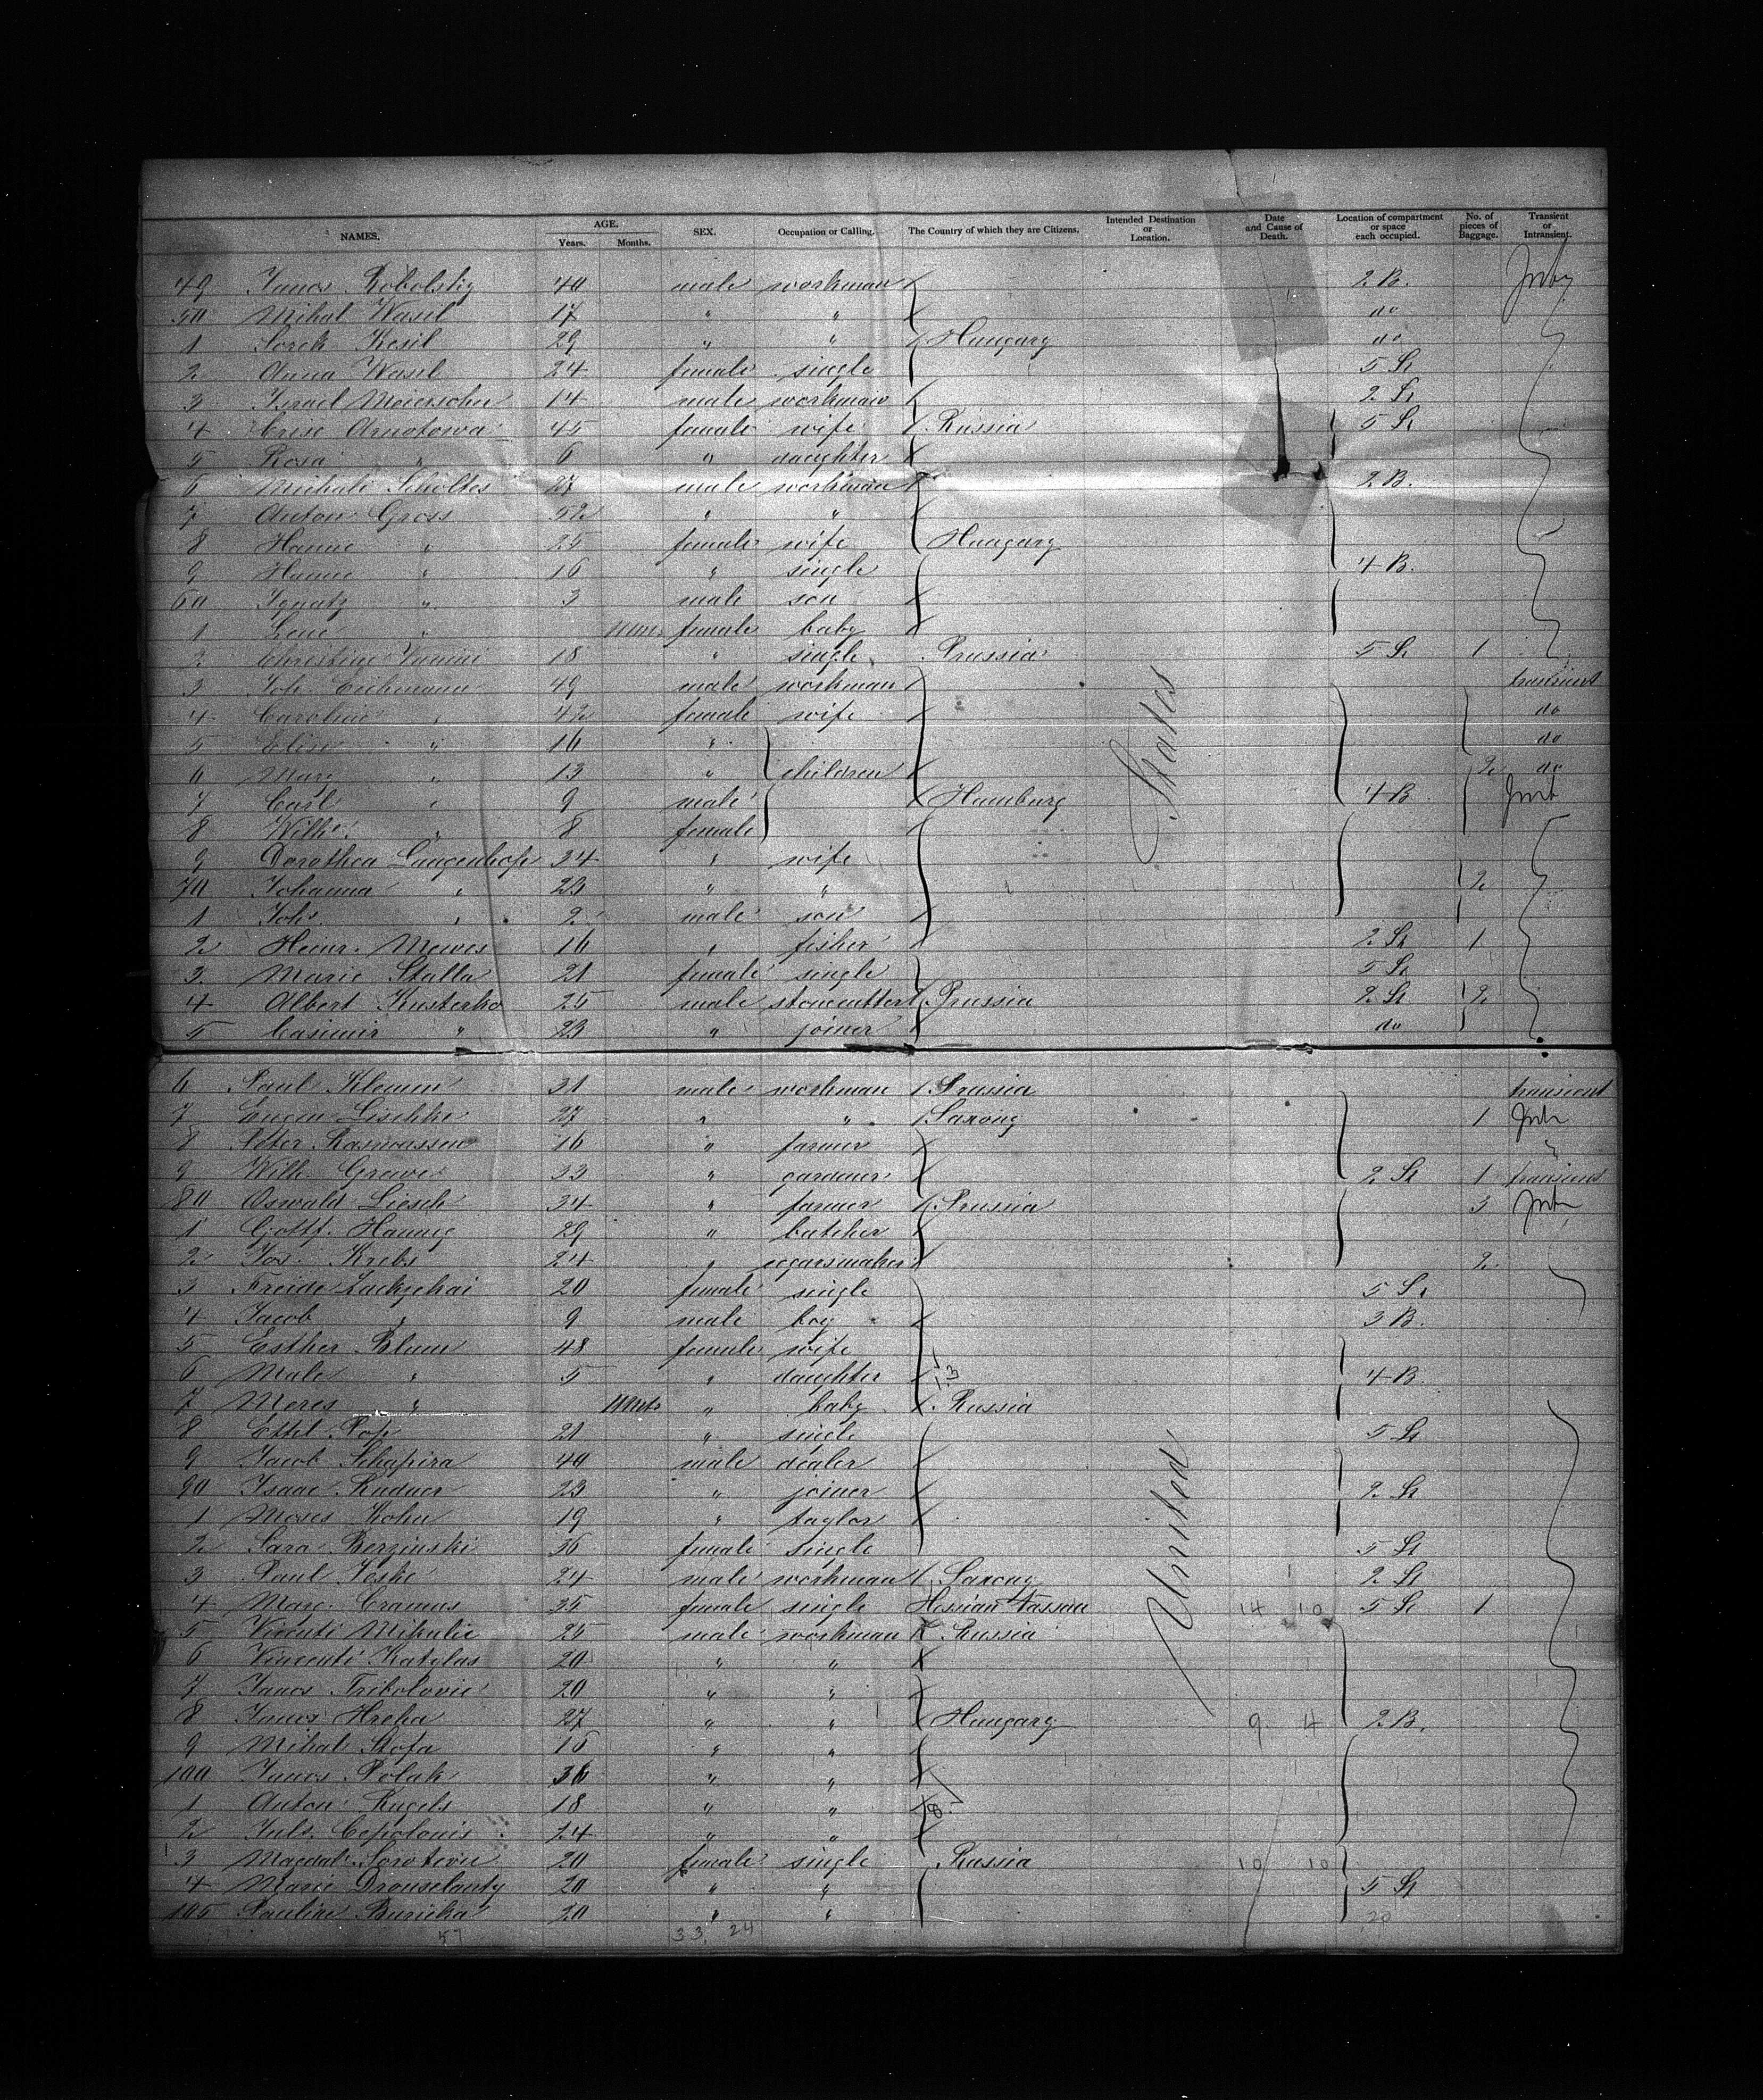 NAMES. AGE. Years. Months. SEX. Occupation or Calling. The Country of which they are Citizens. Intended Destination or Location. Date and Cause of Death. Location of compartment or space each occupied. No. of pieces of Baggage. Transient or Intransient.
49 Janos Robolsky 40 male workman 2 B.
50 Mihal Wasil 17 " " do
1 Kesil 29 " " Hungary do
2 Anna Wasil 24 female single 5 St
3 Israel 14 male workman 2 St
4 45 female wife Russia 5 St
5 Rosa " 6 " daughter
6 Michali Scholtes 27 male workman 2 B.
7 Anton Gross 52 " "
8 Hanne " 25 female wife Hungary
9 Hanne " 16 " single 4 B.
60 Ignatz " 3 male son
1 Lene " female baby
2 Christine 18 " single Prussia 5 St 1
3 Joh. Eichmann 49 male workman transient
4 Caroline " 42 female wife do
5 Elise " 16 " do
6 Marg " 13 " children 2 do
7 Carl " 9 male Hamburg 4 B
8 Wilh. " 8 female
9 Dorothea Langenhop 34 " wife
70 Johanna " 23 " " 2
1 Joh. " 2 male son
2 Heinr. Mewes 16 " fisher 2 St 1
3 Marie Stalla 21 female single 5 St
4 Albert Kusterko 25 male stonecutter Prussia 2 St 2
5 Casimir " 23 " joiner do
6 Paul Klemm 31 male workman Prussia transient
7 Eugen Lischke 27 " " Saxony 1
8 Peter Rasmussen 16 " farmer "
9 Wilh. Grewe 33 " gardener 2 St 1 transient
80 Oswald Liesch 34 " farmer Prussia 3
1 Gottf. Hannig 29 " butcher
2 Jos. Krebs 24 " cigarsmaker 2
3 Freide 20 female single 5 St
4 Jacob " 9 male boy 3 B.
5 Esther Blum 48 female wife
6 Male " 5 " daughter 4 B
7 Meres " " baby Russia
8 Ettel Pop 21 " single 5 St
9 Jacob Schapira 40 male dealer
90 Isaac Rudner 23 " joiner 2 St
1 Moses Kohn 19 " taylor
2 Sara Berzinski 36 female single 5 St
3 Paul Jeske 24 male workman Saxony 2 St
4 Marg. Cramus 35 female single 14 10 5 St 1
5 Vicenti Mikulic 25 male workman Russia
6 Vincenti Katylas 20 " "
7 Janos Tribolovic 20 " "
8 Janos Hreha 27 " " Hungary 9 4 2 B.
9 Mihal Stofa 16 " "
100 Janos Polak 36 " "
1 Anton Rugels 18 " " 8
2 Juls. Cepolonis 24 " "
3 Magdal. 20 female single Russia 10 10
4 Marie 20 " " 5 St
105 Pauline Buricka 20 " " 20
57 33 24
United States